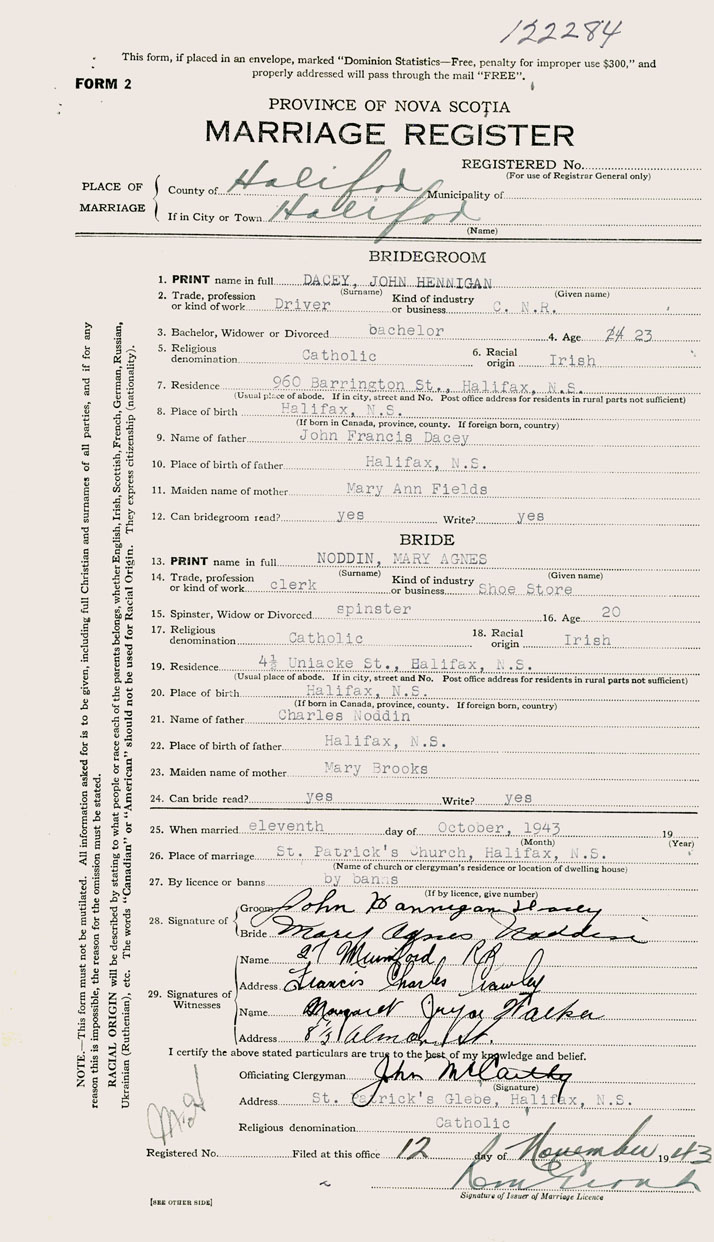 122284
This form, if placed in an envelope, marked "Dominion Statistics—Free, penalty for improper use $300," and
properly addressed will pass through the mail "FREE".
FORM 2
PROVINCE OF NOVA SCOTIA
MARRIAGE REGISTER
REGISTERED No.
(For use of Registrar General only)
PLACE OF MARRIAGE
County of Halifax Municipality of
If in City or Town Halifax
(Name)
BRIDEGROOM
1. PRINT name in full DACEY, JOHN HENNIGAN
(Surname) (Given name)
2. Trade, profession or kind of work Driver Kind of industry or business C. N.R.
3. Bachelor, Widower or Divorced bachelor 4. Age 24 23
5. Religious denomination Catholic 6. Racial origin Irish
7. Residence 960 Barrington St., Halifax, N.S.
(Usual place of abode. If in city, street and No. Post office address for residents in rural parts not sufficient)
8. Place of birth Halifax, N.S.
(If born in Canada, province, county. If foreign born, country)
9. Name of father John Francis Dacey
10. Place of birth of father Halifax, N.S.
11. Maiden name of mother Mary Ann Fields
12. Can bridegroom read? yes Write? yes
BRIDE
13. PRINT name in full NODDIN, MARY AGNES
(Surname) (Given name)
14. Trade, profession or kind of work clerk Kind of industry or business Shoe Store
15. Spinster, Widow or Divorced spinster 16. Age 20
17. Religious denomination Catholic 18. Racial origin Irish
19. Residence 4½ Uniacke St., Halifax, N.S.
(Usual place of abode. If in city, street and No. Post office address for residents in rural parts not sufficient)
20. Place of birth Halifax, N.S.
(If born in Canada, province, county. If foreign born, country)
21. Name of father Charles Noddin
22. Place of birth of father Halifax, N.S.
23. Maiden name of mother Mary Brooks
24. Can bride read? yes Write? yes
25. When married eleventh day of October, 1943 19
(Month) (Year)
26. Place of marriage St. Patrick's Church, Halifax, N.S.
(Name of church or clergyman's residence or location of dwelling house)
27. By licence or banns by banns
(If by licence, give number)
28. Signature of
Groom John Hannigan
Bride Mary Agnes Noddin
29. Signatures of Witnesses
Name 27 Mumford Rd
Address Francis Charles Crawley
Name Margaret Joyce Walker
Address Almon St.
I certify the above stated particulars are true to the best of my knowledge and belief.
Officiating Clergyman John McCarthy
(Signature)
Address St. Patrick's Glebe, Halifax, N.S.
Religious denomination Catholic
Registered No. Filed at this office 12 day of November 1943
Signature of Issuer of Marriage Licence
[SEE OTHER SIDE]
NOTE.—This form must not be mutilated. All information asked for is to be given, including full Christian and surnames of all parties, and if for any
reason this is impossible, the reason for the omission must be stated.
RACIAL ORIGIN will be described by stating to what people or race each of the parents belongs, whether English, Irish, Scottish, French, German, Russian,
Ukrainian (Ruthenian), etc. The words "Canadian" or "American" should not be used for Racial Origin. They express citizenship (nationality).